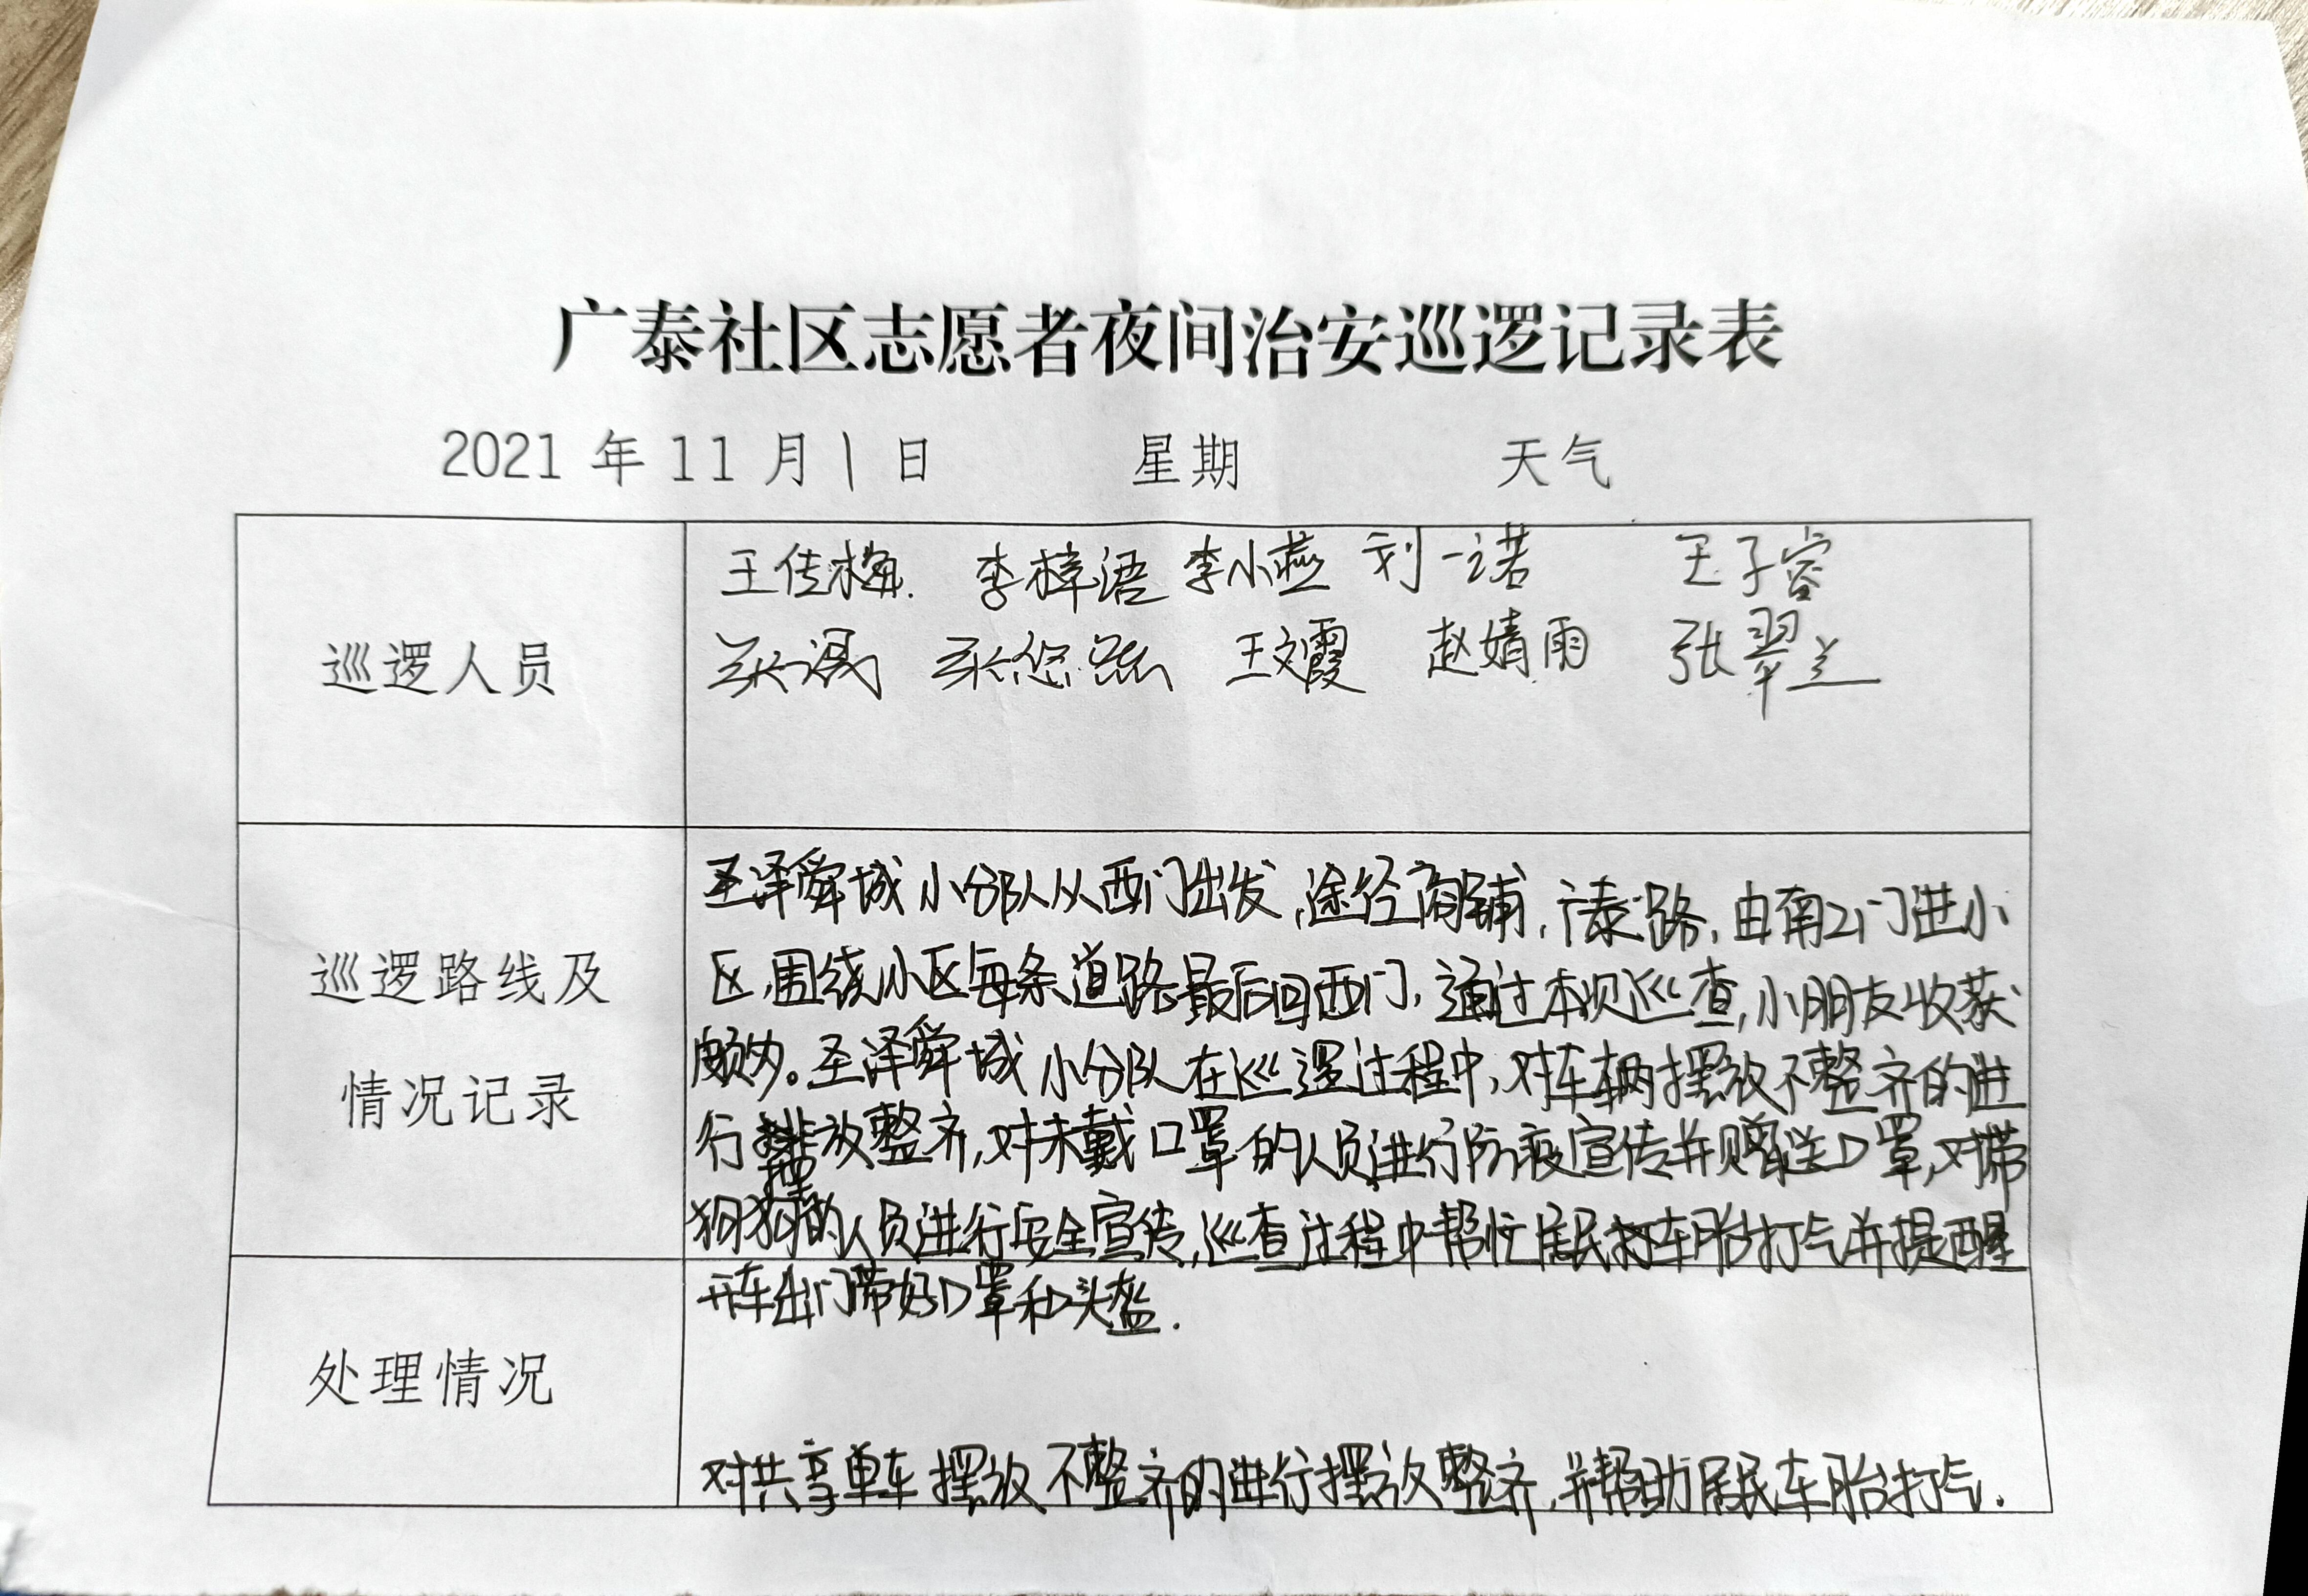 广泰社区志愿者夜间治安巡逻记录表
2021 年 11 月 1 日 星期 天气
巡逻人员
王传梅. 李梓语 李小燕 刘一诺 王子睿
王文霞 赵婧雨 张翠兰
巡逻路线及
情况记录
圣泽舜城小分队从西门出发,途经商铺,广泰路,由南2门进小
区,围绕小区每条道路最后回西门,通过本次巡查,小朋友收获
颇多。圣泽舜城小分队在巡逻过程中,对车辆摆放不整齐的进
行摆放整齐,对未戴口罩的人员进行防疫宣传并赠送口罩,对带
狗狗的人员进行安全宣传,巡查过程中帮忙居民打车胎打气并提醒
开车出门带好口罩和头盔.
处理情况
对共享单车摆放不整齐的进行摆放整齐,并帮助居民车胎打气.